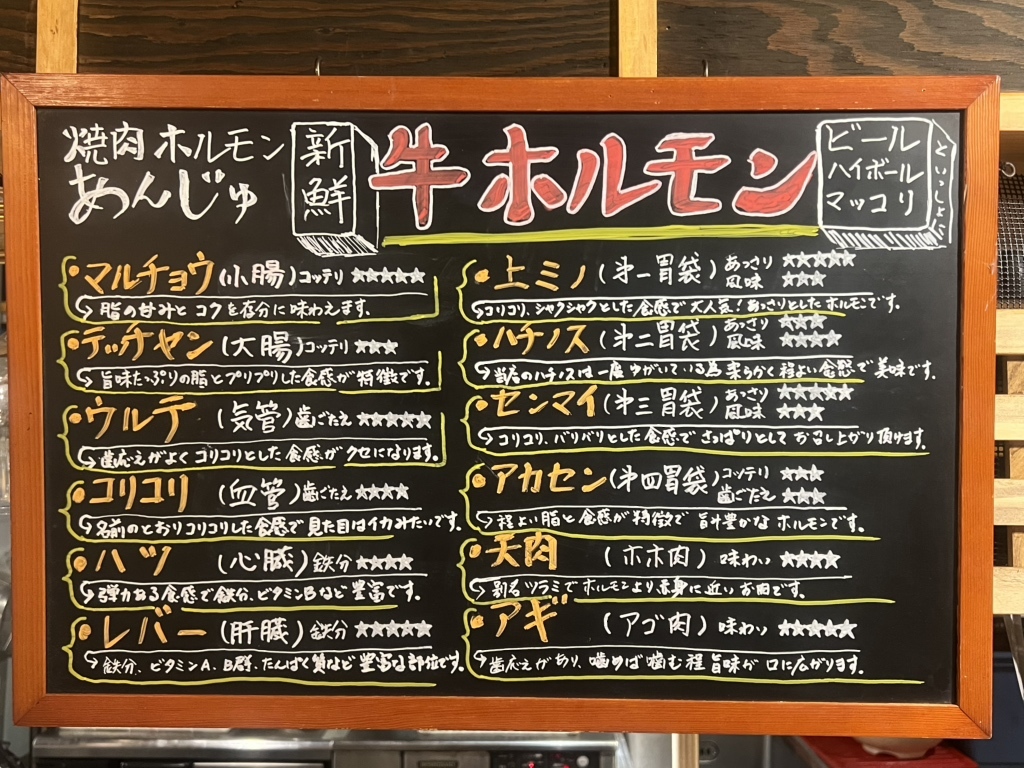 焼肉 ホルモン
あんじゅ
新鮮
牛ホルモン
ビール
ハイボール
マッコリ
といっしょに
・マルチョウ(小腸)コッテリ ★★★★★
→脂の甘みと コクを存分に味わえます。
・テッチャン(大腸)コッテリ ★★★
→旨味たっぷりの脂とプリプリした食感が特徴です。
・ウルテ (気管)歯ごたえ ★★★★★
→歯応えがよくコリコリとした食感がクセになります。
・コリコリ (血管)歯ごたえ ★★★★
→名前のとおりコリコリした食感で見た目はイカみたいです。
・ハツ (心臓)鉄分 ★★★★
→弾力ある食感で鉄分、ビタミンBなど豊富です。
・レバー(肝臓)鉄分 ★★★★★
→鉄分、ビタミンA、B群、たんぱく質など豊富な部位です。
・上ミノ(第一胃袋)あっさり ★★★★★
風味 ★★★
→コリコリ、シャクシャクとした食感で大人気!あっさりとしたホルモンです。
・ハチノス(第二胃袋)あっさり ★★★
風味 ★★★★
→当店のハチノスは一度ゆがいている為柔らかく程よい食感で美味です。
・センマイ(第三胃袋)あっさり ★★★★★
風味 ★★★
→コリコリ、バリバリとした食感でさっぱりとしてお召し上がり頂けます。
・アカセン(第四胃袋)コッテリ ★★★
歯ごたえ ★★★
→程よい脂と食感が特徴で旨味豊かなホルモンです。
・天肉 (ホホ肉)味わい ★★★★
→別名ツラミでホルモンより赤身に近いお肉です。
・アギ (アゴ肉)味わい ★★★★★
→歯応えがあり、噛めば噛む程旨味が口に広がります。